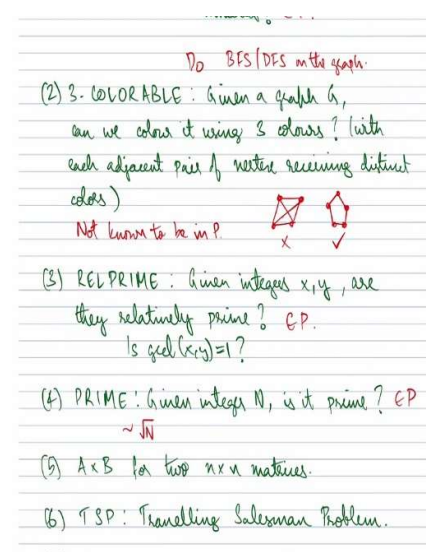 Do BFS/DFS on the graph.
(2) 3-COLORABLE : Given a graph G,
can we colour it using 3 colours? (with
each adjacent pair of vertex receiving distinct
colors)
Not known to be in P.
x ✓
(3) RELPRIME : Given integers x, y, are
they relatively prime? ∈P.
Is gcd(x,y)=1?
(4) PRIME : Given integer N, is it prime? ∈P
~ √N
(5) A×B for two n×n matrices.
(6) TSP : Travelling Salesman Problem.